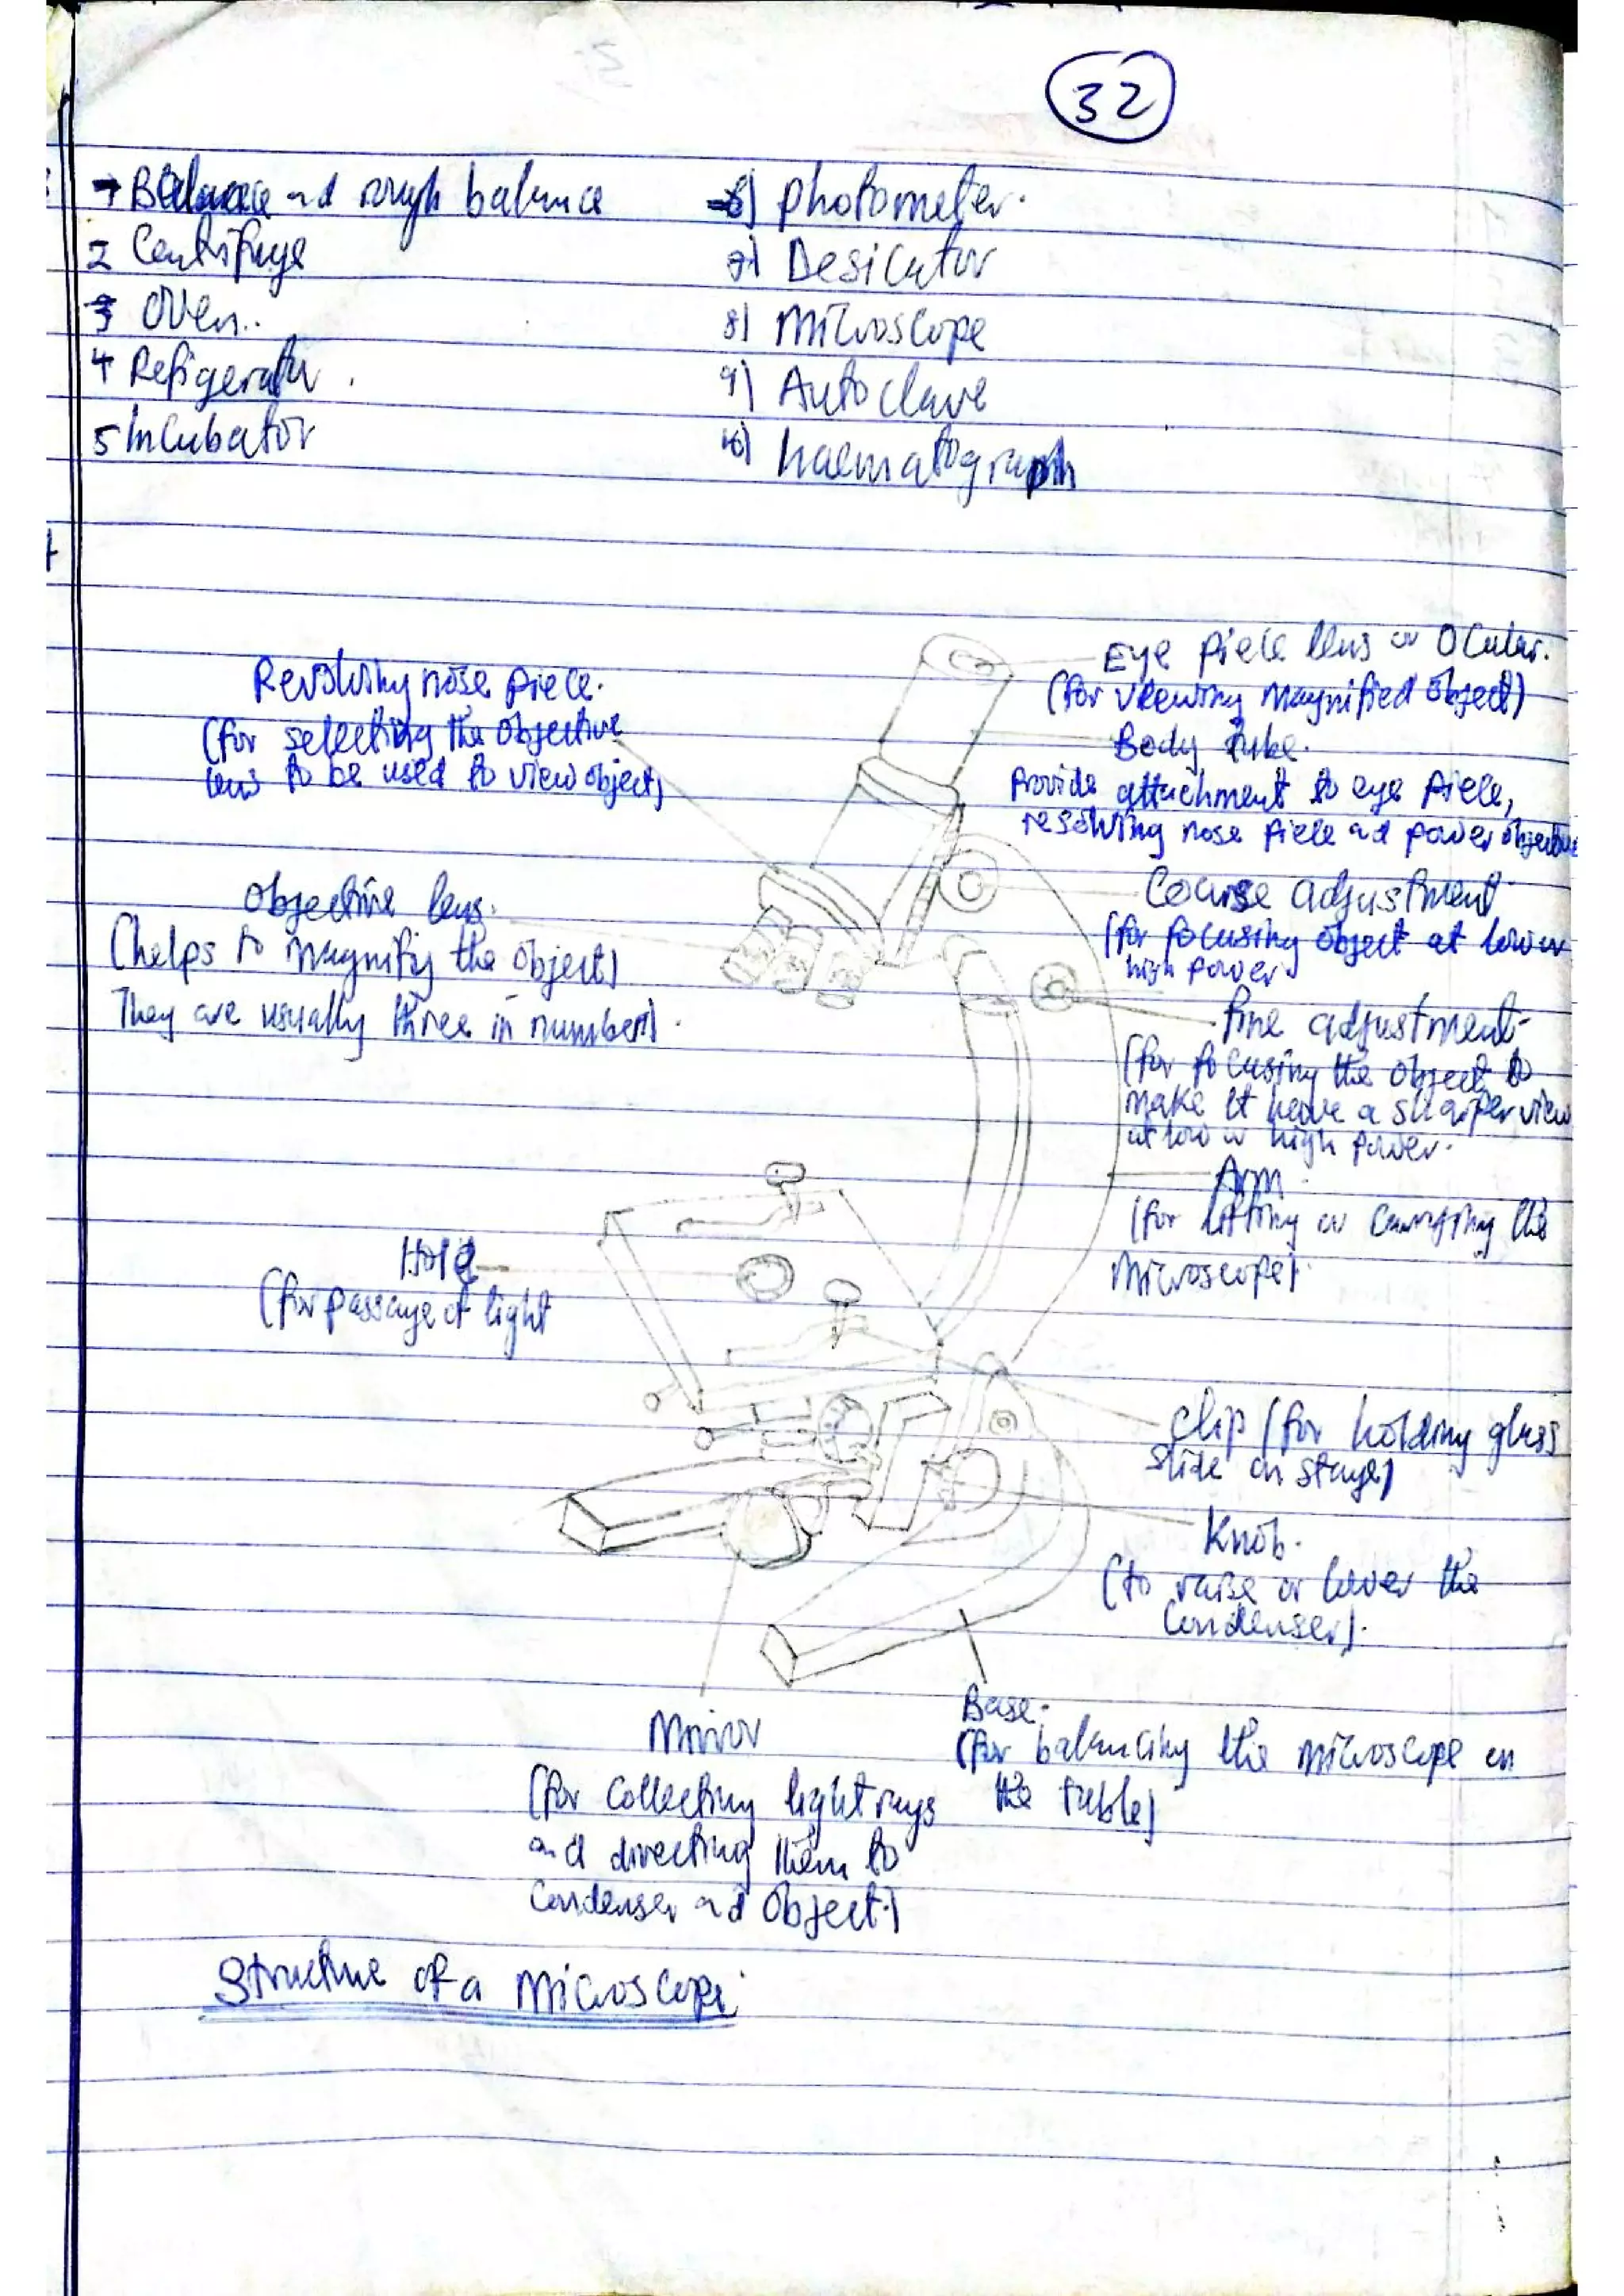 32
Balance and rough balance
2 Centrifuge
3 Oven..
4 Refigerator.
5 Incubator
6) photometer.
7) Desicator
8) Microscope
9) Autoclave
10) haematograph
Revolving nose piece.
(for selecting the objective
lens to be used to view object)
Objective lens.
(helps to magnify the object)
They are usually three in number).
Hole
(for passage of light
Eye piece lens or Ocular.
(for viewing magnified object)
Body tube.
Provide attachment to eye piece,
resolving nose piece and power objective
Course adjustment
(for focusing object at low or
high power)
fine adjustment
(for focusing the object to
make it have a sharper view
at low or high power.
Arm
(for lifting or carrying the
microscope).
Clip (for holding glass
slide on stage)
Knob.
(to raise or lower the
Condenser).
Base.
(for balancing the microscope on
the table)
Mirror
(for collecting light rays
and directing them to
condenser and object.)
Structure of a microscope.